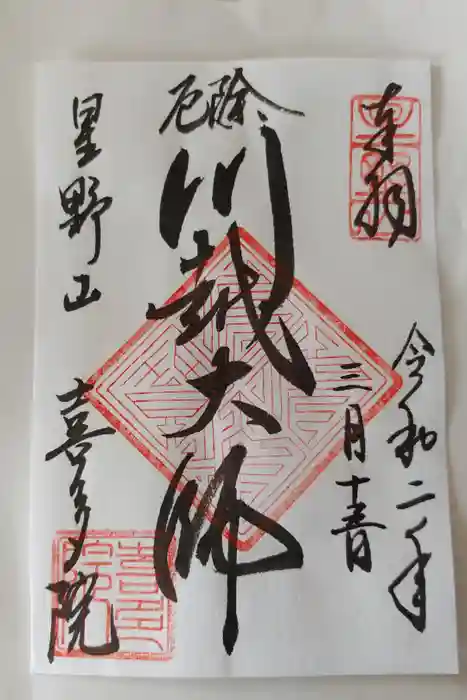 奉拝
令和二年
三月十五日
厄除
川越大師
星野山
喜多院